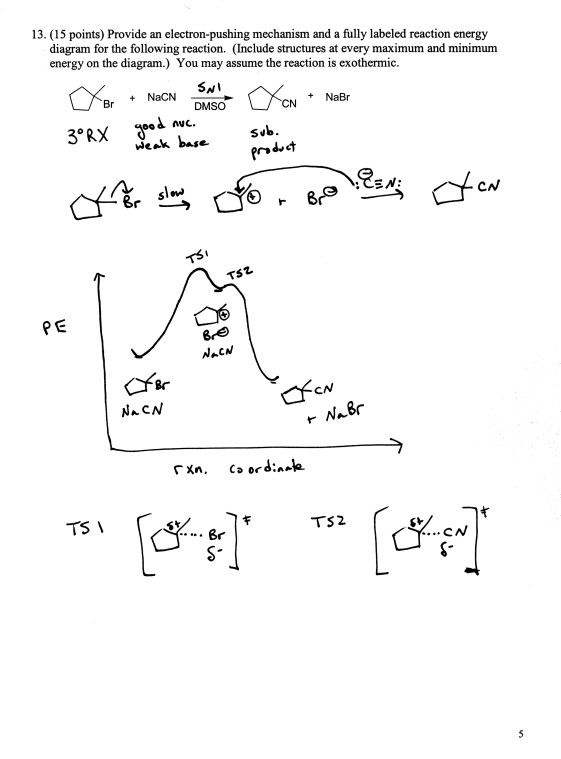 13. (15 points) Provide an electron-pushing mechanism and a fully labeled reaction energy
diagram for the following reaction. (Include structures at every maximum and minimum
energy on the diagram.) You may assume the reaction is exothermic.
SN1
Br + NaCN DMSO CN + NaBr
3° RX good nuc. sub.
weak base product
Br slow ⊕ + Br⊖ ⊖:C≡N: CN
TS1
TS2
PE
⊕
Br⊖
NaCN
Br CN
NaCN + NaBr
rxn. coordinate
TS1 [ δ+ Br δ- ]‡ TS2 [ δ+ CN δ- ]‡
5